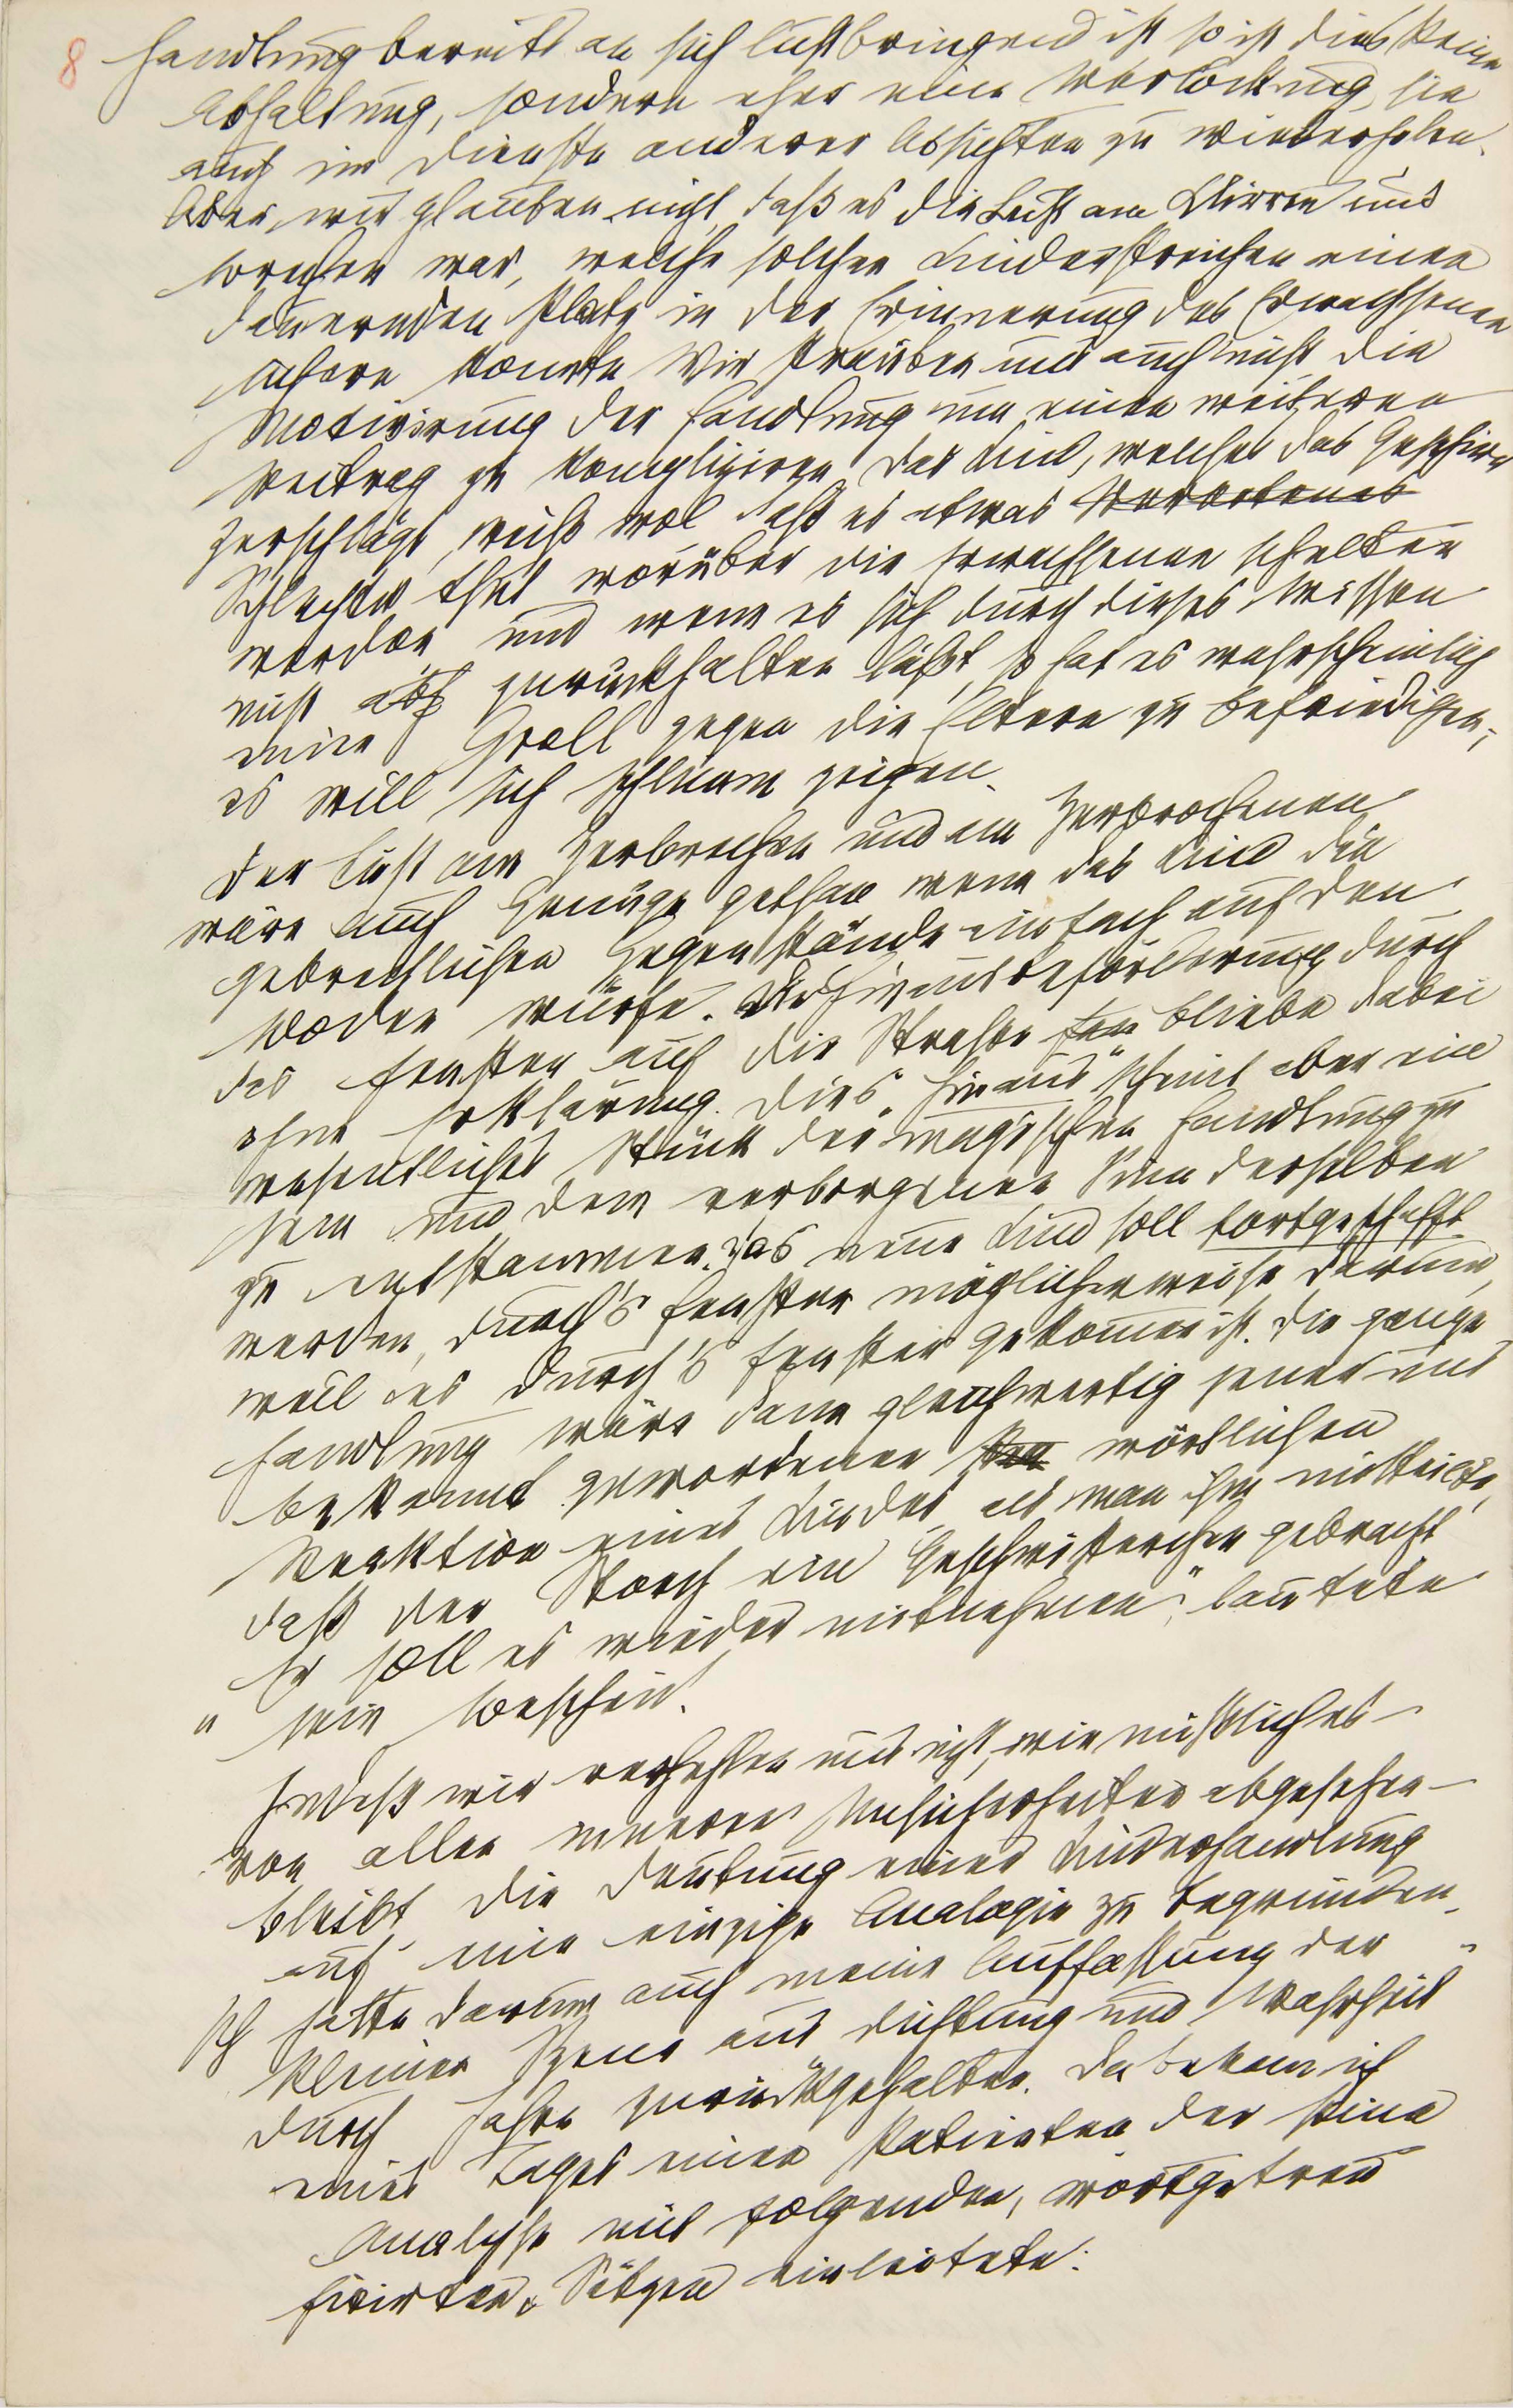 8 Handlung bereits an sich lustbringend ist so ist dies keine
Abhaltung, sondern eher eine Verlockung, sie
auch im Dienste anderer Absichten zu wiederholen.
Aber wir glauben nicht, daß es die Lust am Klirren und
Brechen war, welche solchen Kinderstreichen einen
dauernden Platz in der Erinnerung des Erwachsenen
sichern konnte Wir sträuben uns auch nicht die
Motivirung der Handlung um einen weiteren
Beitrag zu kompliziren. Das Kind, welches das Geschirr
zerschlägt, weiß wol daß es etwas Verbotenes
Schlechtes thut worüber die Erwachsenen schelten
werden und wenn es sich durch dieses Wissen
nicht zurückhalten läßt, so hat es wahrscheinlich
einen Groll gegen die Eltern zu befriedigen;
es will sich schlimm zeigen.
Der Lust am Zerbrechen und am Zerbrochenen
wäre auch Genüge gethan wenn das Kind die
gebrechlichen Gegenstände einfach auf den
Boden würfe. Die Hinausbeförderung durch
das Fenster auf die Straße bliebe dabei
ohne Erklärung. Dies „Hinaus" scheint aber ein
wesentliches Stück der magischen Handlung zu
sein und dem verborgenen Sinn derselben
zu entstammen. Das neue Kind soll fortgeschafft
werden, durch's Fenster möglicherweise darum,
weil es durch's Fenster gekommen ist. Die ganze
Handlung wäre dann gleichwertig jener uns
bekannt gewordenen wörtlichen
Reaktion eines Kindes, als man ihm mitteilte,
daß der Storch ein Geschwisterchen gebracht
„Er soll es wieder mitnehmen", lautete
sein Bescheid.
Indeß wir verhehlen uns nicht, wie mißlich es –
von allen inneren Unsicherheiten abgesehen –
bleibt, die Deutung einer Kinderhandlung
auf eine einzige Analogie zu begründen.
Ich hatte darum auch meine Auffassung der
kleinen Szene aus Dichtung und Wahrheit
durch Jahre zurückgehalten. Da bekam ich
eines Tages einen Patienten der seine
Analyse mit folgenden, wortgetreu
fixirten Sätzen einleitete: